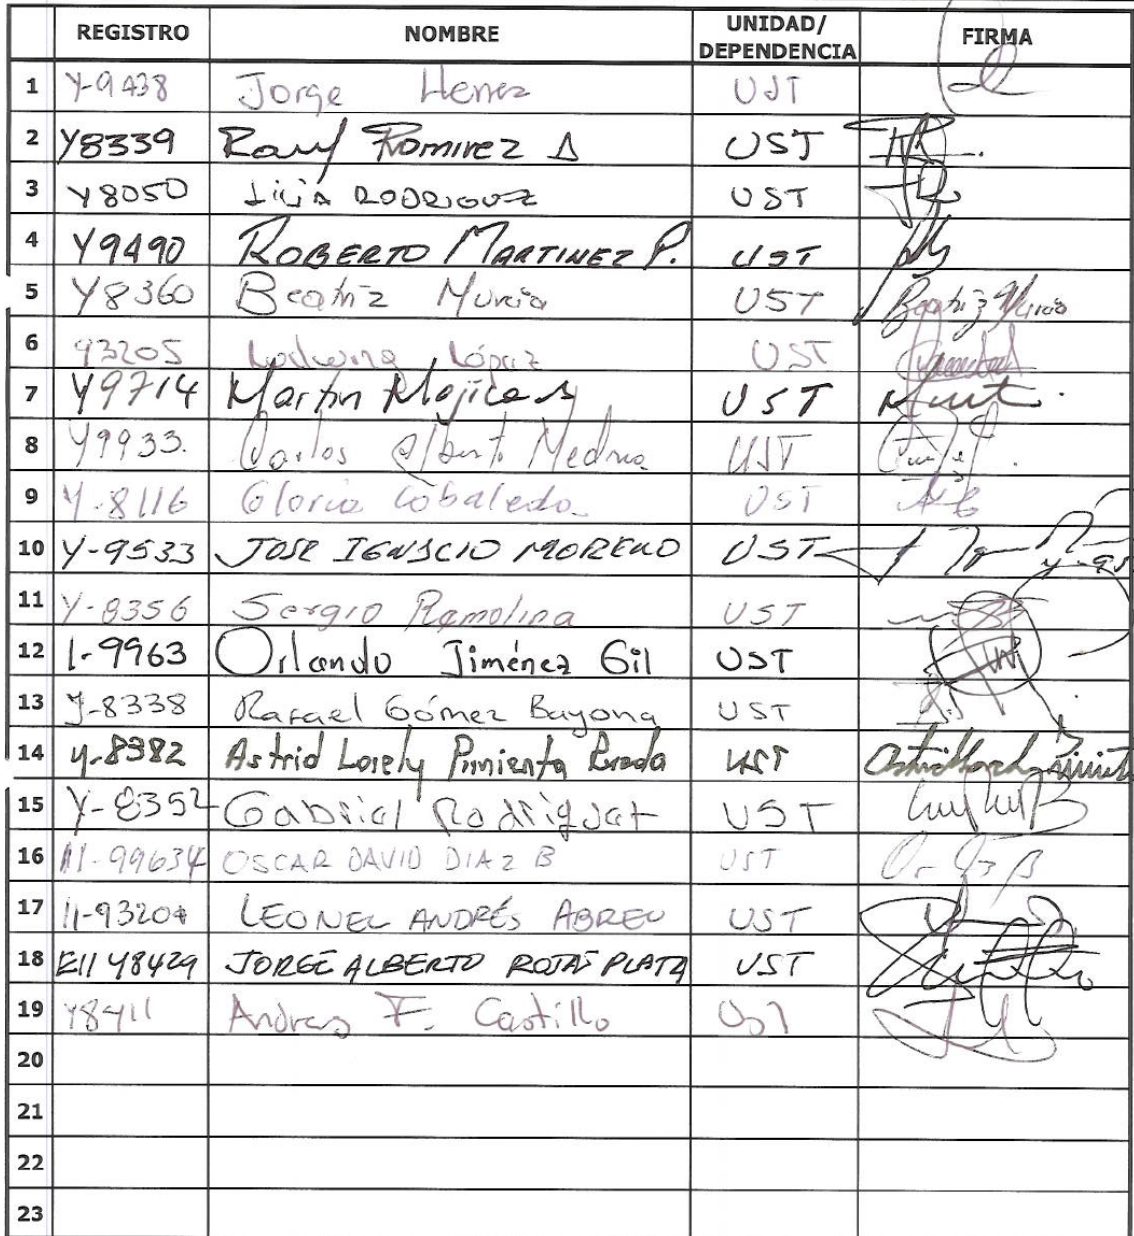 REGISTRO NOMBRE UNIDAD/ DEPENDENCIA FIRMA
1 Y-9438 Jorge UST
2 Y8339 Raul Ramirez UST
3 Y8050 Licia RODRIGUEZ UST
4 Y9490 ROBERTO MARTINEZ P. UST
5 Y8360 Beatriz Murcia UST Beatriz Murcia
6 93205 López UST
7 Y9714 Martin Mojica UST
8 Y9933. Carlos Alberto Medina UST
9 Y-8116 Gloria Cobaleda UST
10 Y-9533 JOSE IGNACIO MORENO UST
11 Y-8356 Sergio Ramolina UST
12 1-9963 Orlando Jiménez Gil UST
13 Y-8338 Rafael Gómez Bayona UST
14 y-8382 Astrid Lorely Pimienta UST
15 Y-8352 Gabriel Rodriguez UST
16 11-99634 OSCAR DAVID DIAZ B UST
17 11-93204 LEONEL ANDRÉS ABREU UST
18 E11Y8429 JORGE ALBERTO ROJAS PLATA UST
19 Y8411 Andres F. Castillo UST
20
21
22
23